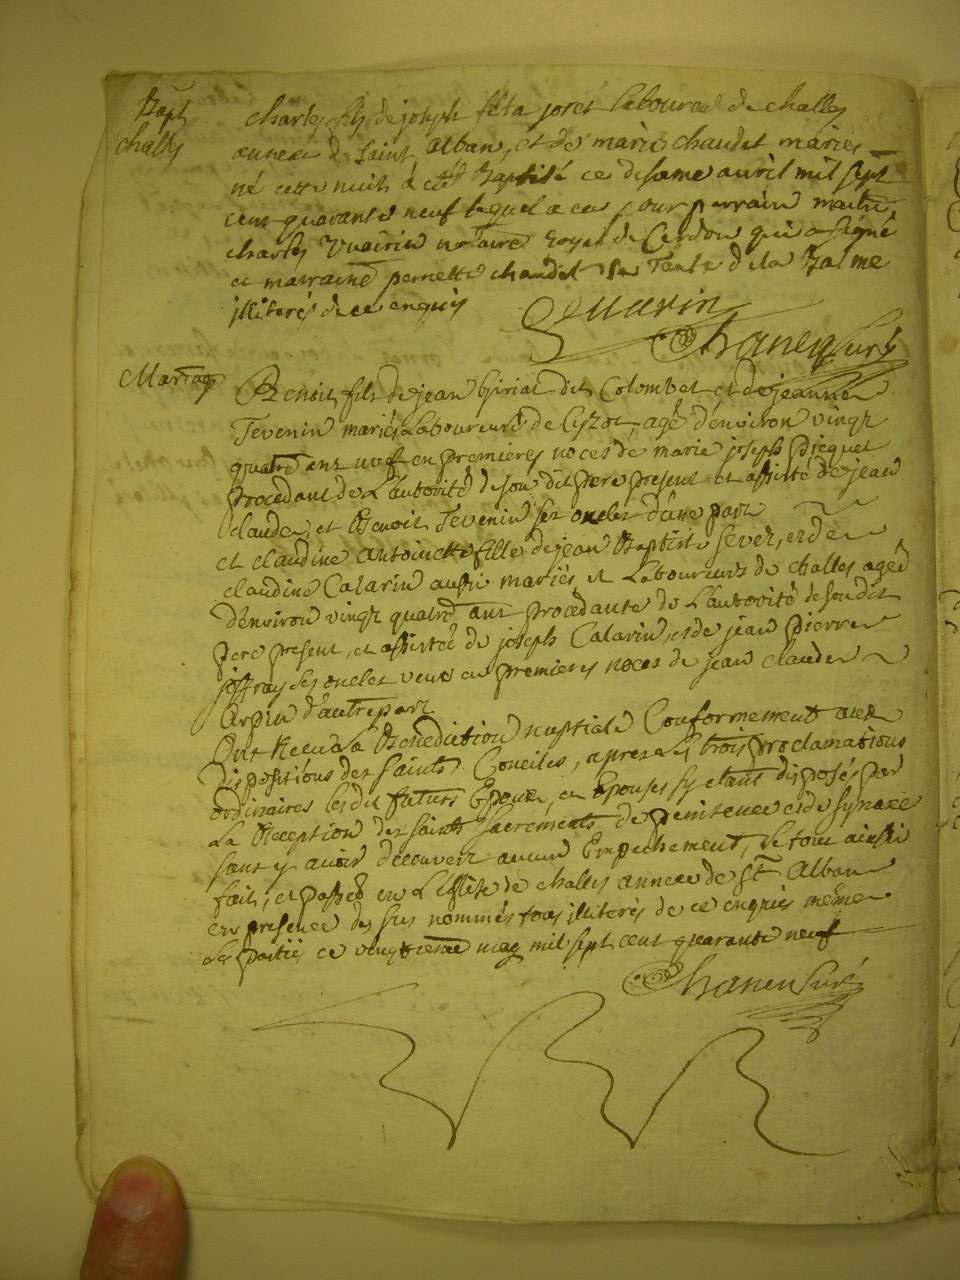 Bapt
challes
charles fils de joseph feta joret laboureur de challes
annexe de Saint Alban, et de marie chaudet mariés
né cette nuit a été Baptisé ce dixième avril mil sept
cent quarante neuf lequel a eu pour parrain maitre
charles Vuarin notaire Royal de Cerdon qui a signé
et marraine pernette chaudet sa Tante de la Balme
illiterés de ce enquis
Vuarin
Chanen Curé
Mariage
Benoit fils de jean Giriat dit Colombet et de jeanne
Tevenin mariés Laboureurs de Cizot, agé d'environ vingt
quatre ans veuf en premieres noces de marie joseph Picquet
procedant de L'autorité de son dit pere present et assisté de jean
claude, et Benoit Tevenin ses oncles d'une part
et claudine antoinette fille de jean Baptiste Sevez, et de
claudine Calarin aussi mariés, et Laboureurs de challes agée
d'environ vingt quatre ans procedante de L'autorité de son dit
pere present, et assistée de joseph Calarin, et de jean pierre
joffray ses oncles veuve en premieres noces de jean claude
Arpin d'autre part
Ont Receu La Benediction nuptiale Conformement aux
dispositions des saints Conciles, apres Les trois proclamations
ordinaires les dit futurs Epoux, et Epouse s'y etants disposés par
La Reception des saints sacrements de penitence et de synaxe
sans y avoir decouvert aucun Empechement, Le tout ainsi
fait, et passé en L'Eglise de challes annexe de St Alban
en presence des sus nommés tous illiterés de ce enquies même
Les parties ce vingtieme may mil sept cent quarante neuf
Chanen Curé